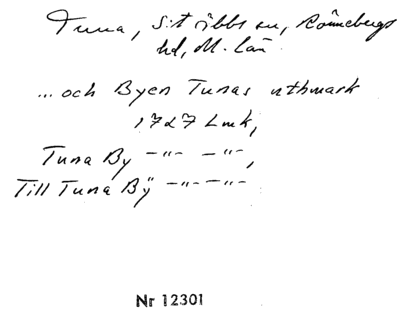 Tuna, S:t Ibbs sn, Rönnebergs
hd, M. län
... och Byen Tunas uthmark
1727 Lmk,
Tuna By -"- -"-,
Till Tuna Bÿ -"- -"-
Nr 12301